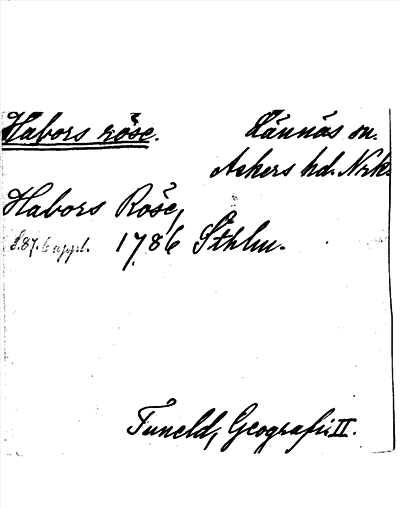 Habors röse.
Lännäs sn.
Askers hd. Nrk.
Habors Röse,
S. 87. 6 uppl. 1786 Sthlm.
Tuneld, Geografi II.